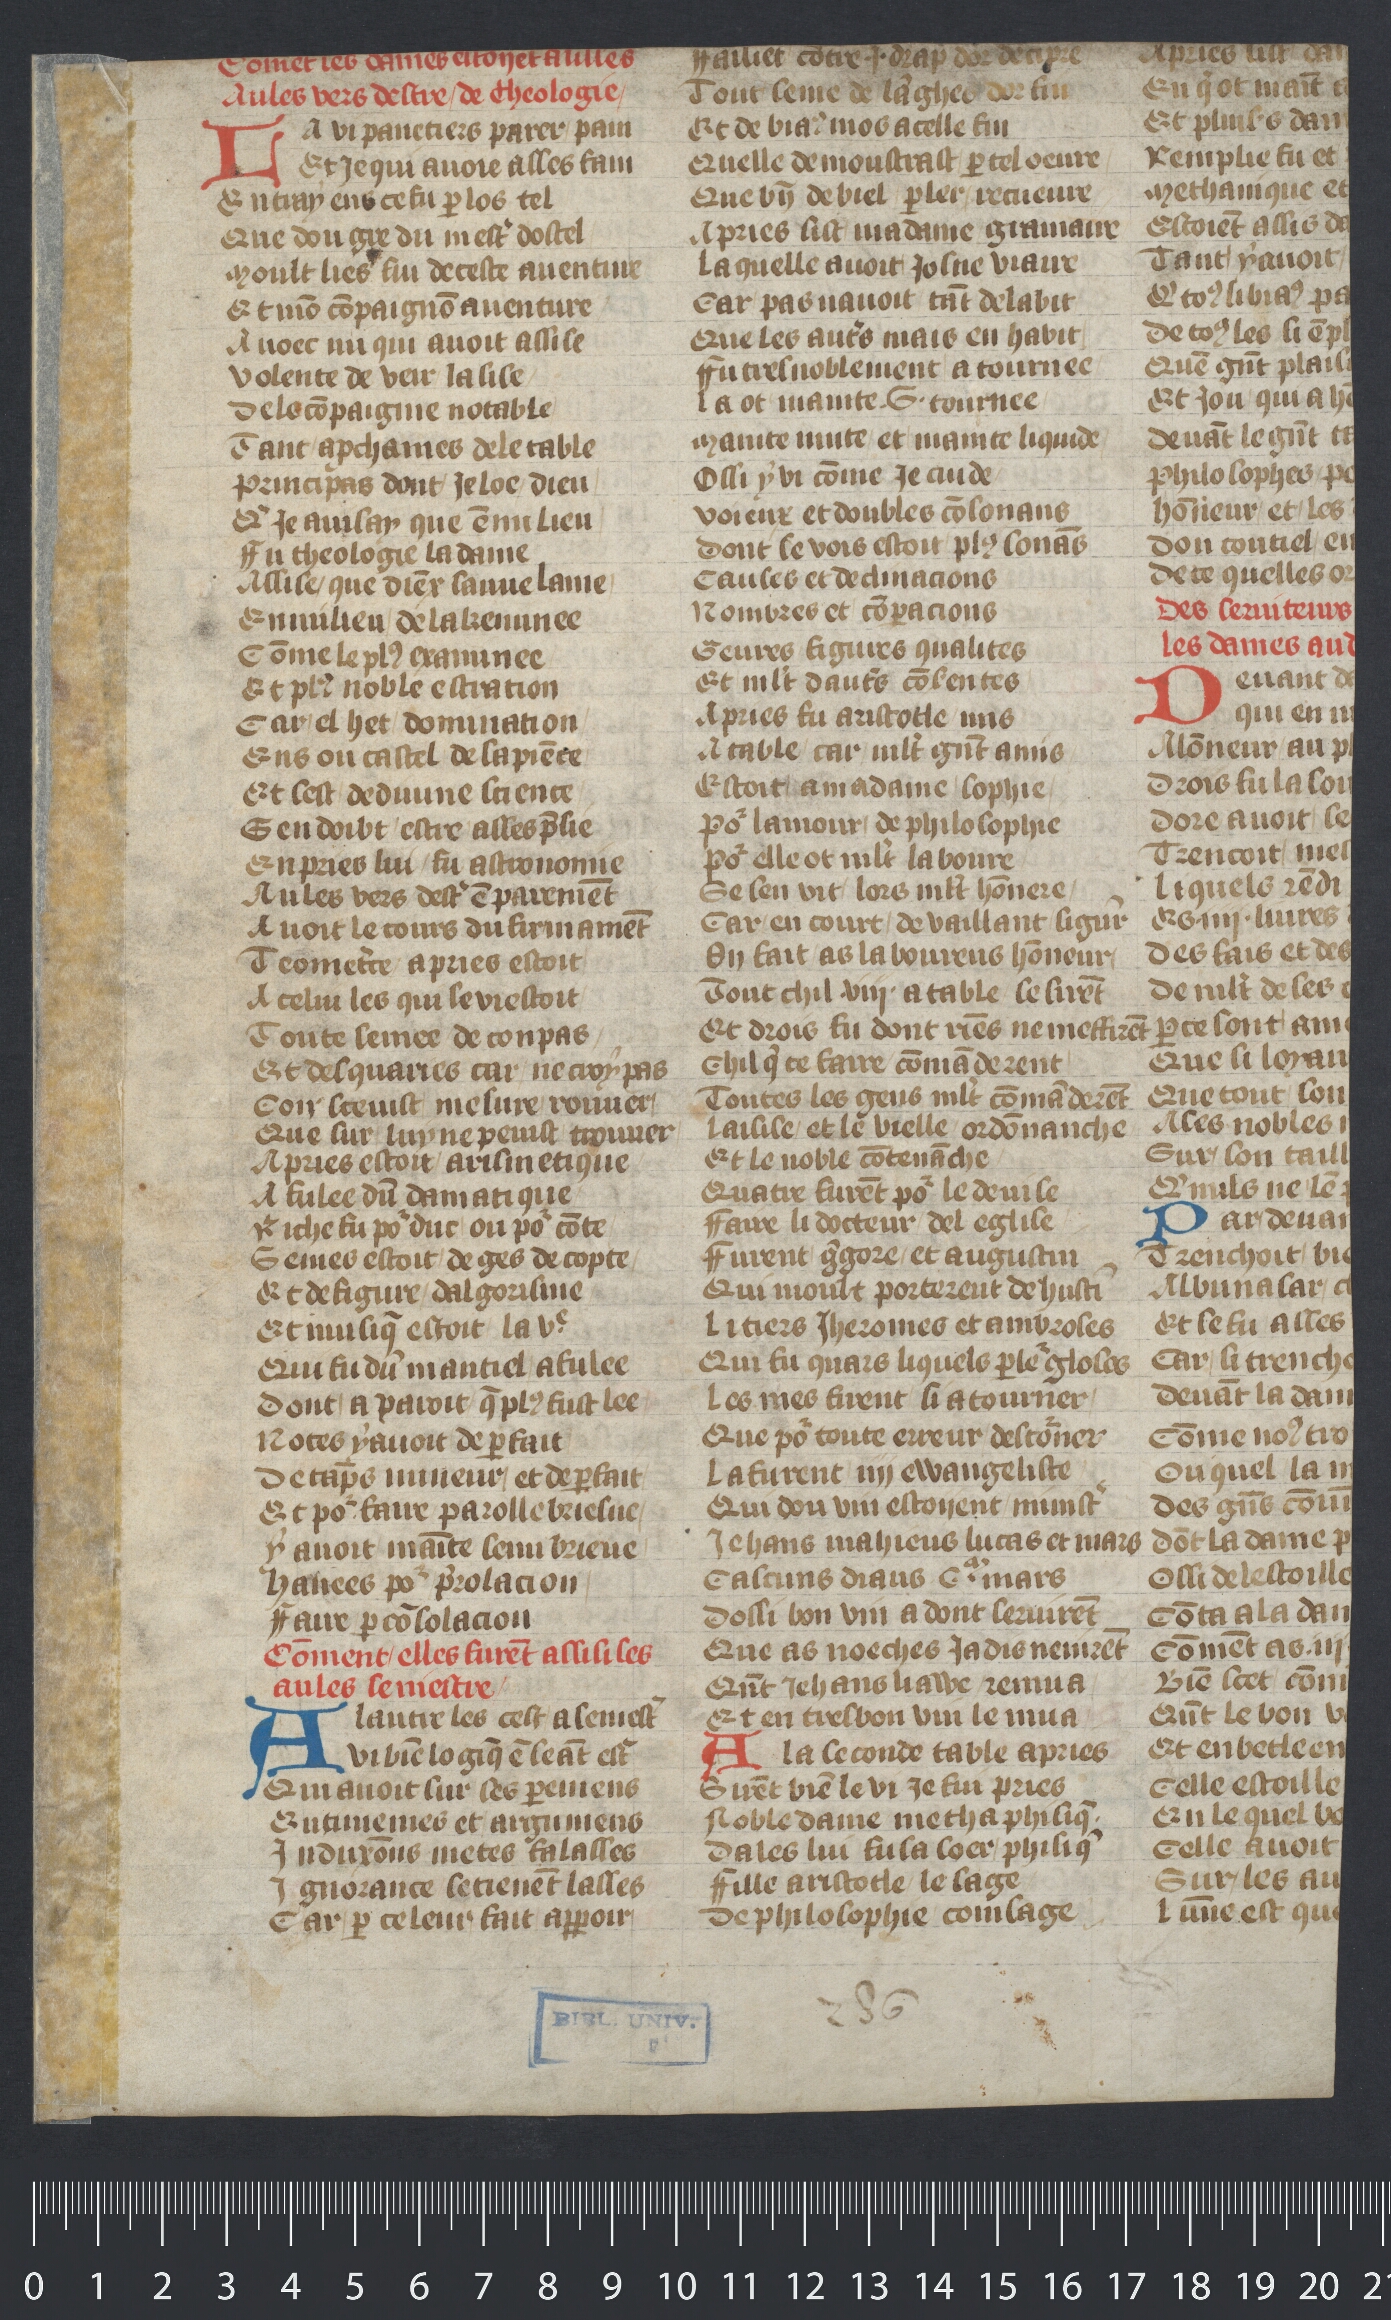 Comēt les dames estoyēt assises
Aules vers destre / de theologie /
LA vi panetiers parer pain
Et Je qui avoie asses fain
Entray ens ce fu p los tel
Que dou gre du mestˢ dostel
Moult lies fui de ceste aventure
Et mō cōpaignō aventure
Avoec mi qui avoit assise
Volente de veir la sise
De le cōpaignie notable
Tant apchames de le table
Principas dont Je loe dieu
Qͬ Je avisay que ē mi lieu
Ffu theologie la dame
Assise / que diex sauve lame /
En milieu de la kemince
Cōme le plꝰ examinee
Et plꝰ noble estration
Car el het domination
Ens ou castel de sapiēce
Et cest de divine science
Sen doibt estre asses p̄sie
En pries lui / fu astronomie
Aules vers destˢ ē paremēt
Avoit le cours du firmamēt
Teometrie apries estoit
A celui les qui se viestoit
Toute semee de conpas
Et desquaries car ne croy pas
Con sceuist mesure rouver /
Que sur luy ne peuist trouver
Apries estoit arismetique
Afulee dū damatique
Riche fu poͬ duc ou poͬ cōte
Semes estoit de ges de copte
Et de figure dalgorisme
Et musiq̄ estoit la vͤ
Qui fu dū mantiel afulee
Dont aparoit q̄ plꝰ fust lee
Notes y avoit de pfait
De tāps mineur / et de pfait
Et poͬ faire parolle briefue
y avoit māite semi brieue
Hauces poͬ p̄rolacion
Ffaire p cōsolacion
Cōment / elles furēt assisi les
aules semestre /
A lautre les cest a semestˢ
vi biē logiq̄ ē seāt estˢ
Qui avoit sur ses pemens
Entimemes et argumens
Induxōns metes falasses
Ignorance se tienēt lasses
Car / p ce leur fait apparoir

Tout seme de lāghes dor fin
Et de viaꝰ mos a celle fin
Quelle demoustrast p tel oeure
Que vn̄ de biel pler / recueure
Apries sist ma dame gramaire
Laquelle avoit Jolie viaire
Car pas navoit tāt de labit
Que les autˢs mais en habit
Ffu tresnoblement atournee
La ot mainte .S. tournee
Mainte mute et mainte liquide
Ossi y vi cōme Je cuide
Voieux et doubles cōsonans
Dont se vois estoit plꝰ sonās
Causes et declinacions
Nombres et cōpacions
Genres figures qualites
Et mlt dautˢs cōsentes
Apries fu aristotle mis
A table car mlt gn̄t amis
Estoit a madame sophie
Poͬ lamour de philosophie
Poͬ elle ot mlt laboure
Se sen vit lors mlt hōnere
Car en court de vaillant signͬ
On fait as laboureus hōneur
Tout chil .viij. a table se sirēt
Et drois fu dont riēs ne meffirēt
Chil q̄ ce faire cōmāderent
Toutes les gens mlt cōmāderēt
La sise et le vielle ordōnanche
Et le noble cōtenāche
Quatre furēt poͬ le devise
Ffaire li docteur del eglise
Ffurent gͬgore et augustin
Qui moult porterent de hustī
Li tiers Jheromes et ambroses
Qui fu quars liquels p seˢ gloses
Les mes firent si atourner
Que poͬ toute erreur destōner
La furent iiij ewangeliste
Qui dou vin estoyent ministˢ
Jehans mahieus lucas et mars
Cascuns diaus C. mars
Dossi bon vin adont servirēt
Que as noeches Jadis nen virēt
Qn̄t Jehans liawe remua
Et en tresbon vin le mua
A la seconde table apries
Sirēt biē le vi Je fui pries
Noble dame methaphisiq̄.
Dales lui fu sa soer / phisiq̄
Ffille aristotle le sage
De philosophie com sage

Et plui's dam
Remplie fu et
Methanique et
Estoiēt assis de
Tant y avoit
Qͬ toꝰ libiaꝰ pa
De toꝰ les si ēpl
Quē gn̄t plaisi
Et Jou qui a hō
Devāt le gn̄t ta
Philosophes / po
Hōneur / et / les
Don coutiel / en
De ce quelles or
Des serviteurs
les dames aud
Devant de
qui en m
A lōneur au pl
Drois fu la sou
Dore avoit se
Trencoit / mes
Liquels rēdi
Es .iiij. livres
Des fais et des
De mlt de ses
P ce sont / ame
Que si loyau
Que tout sou
A ses nobles
Sur / son taill
Qͬ nuls ne sē
Par / devan
Trenchoit / bie
Albumasar / c
Et se fu asses
Car / si trenche
Devāt la dam
Cōme noꝰ tro
Ou quel la m
Des gn̄s cōm
Dōt la dame p
Ossi de lestoille
Cōta a la dam
Cōmēt as .iij.
Biē scet cōm
Qn̄t le bon v
Et en betleem
Celle estoille
En le quel be
Celle avoit
Sur / les au
Lūne est que
286
BIBL. UNIV.